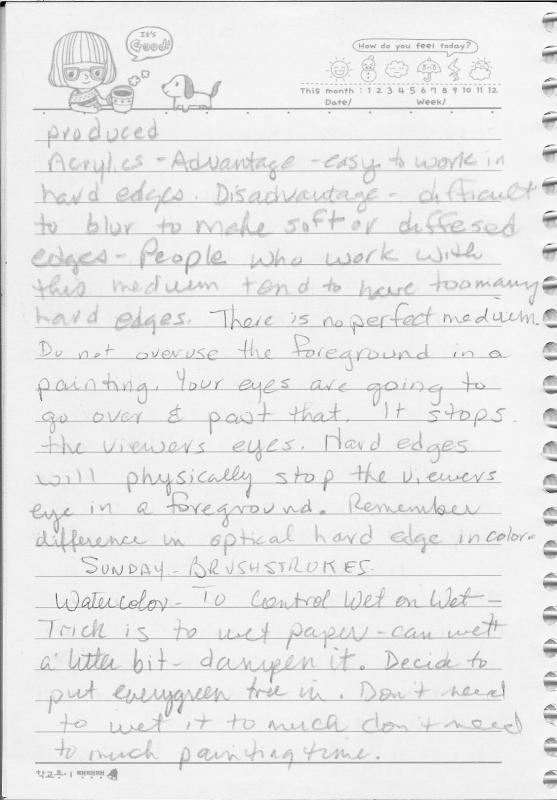 It's Good!
How do you feel today?
This month : 1 2 3 4 5 6 7 8 9 10 11 12
Date/ Week/
produced
Acrylics - Advantage - easy to work in
hard edges. Disadvantage - difficult
to blur to make soft or diffesed
edges - People who work with
this medium tend to have too many
hard edges. There is no perfect medium.
Do not overuse the foreground in a
painting. Your eyes are going to
go over & past that. It stops
the viewers eyes. Hard edges
will physically stop the viewers
eye in a foreground. Remember
difference in optical hard edge in color.
SUNDAY - BRUSHSTROKES.
Watercolor - To Control Wet on Wet -
Trick is to wet paper - can wett
a little bit - dampen it. Decide to
put evergreen tree in. Don't need
to wet it to much don't need
to much painting time.